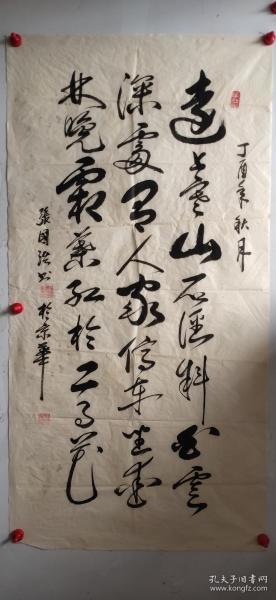 丁酉年秋月
遠上寒山石徑斜白雲
深處有人家停車坐愛
林晚霜葉紅於二月花
張國
書於京華
孔夫子旧书网